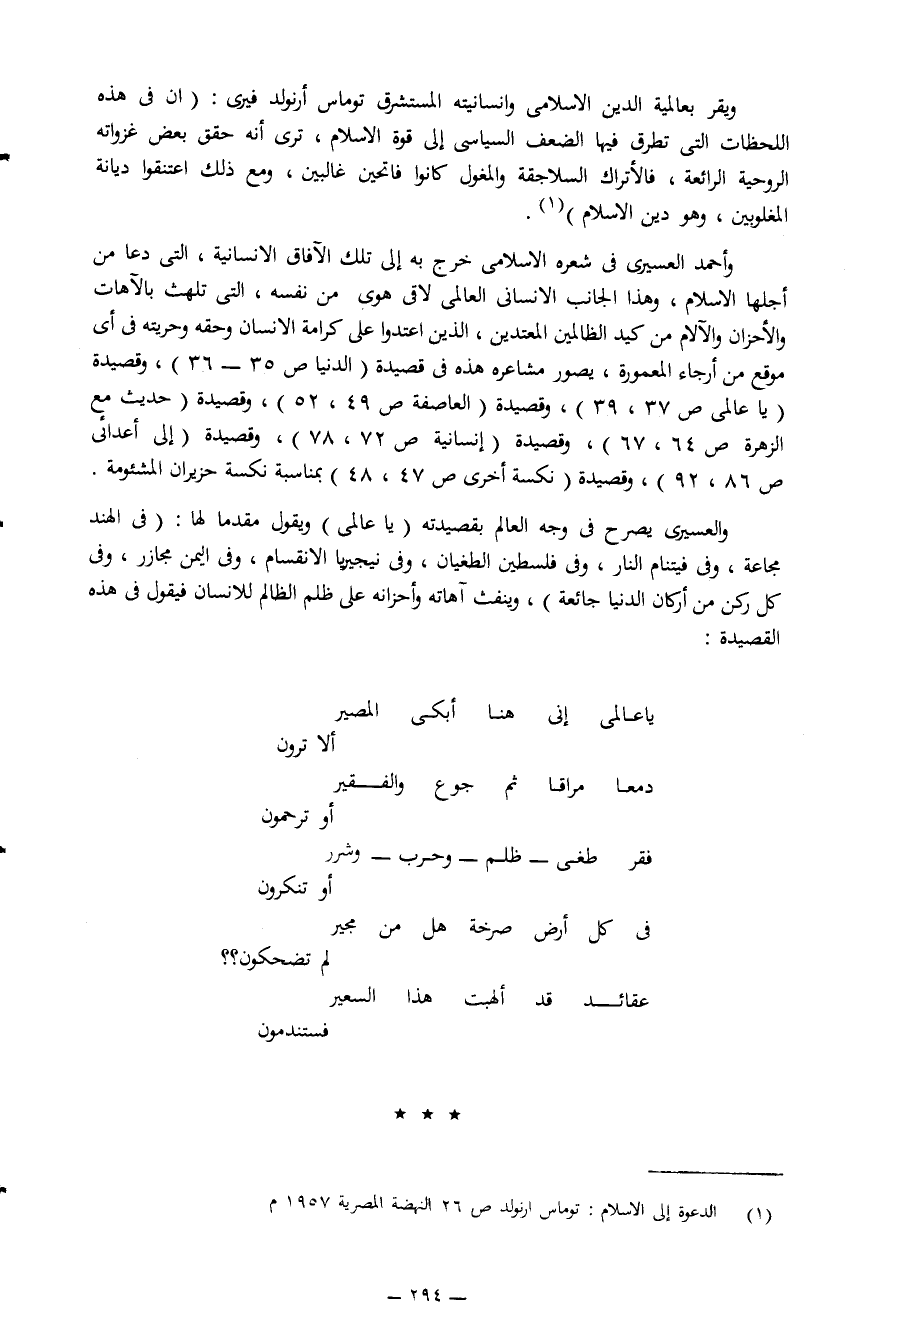 ويقر بعالمية الدين الاسلامى وانسانيته المستشرق توماس أرنولد فيرى : ( ان فى هذه
اللحظات التى تطرق فيها الضعف السياسى إلى قوة الاسلام ، ترى أنه حقق بعض غزواته
الروحية الرائعة ، فالأتراك السلاجقة والمغول كانوا فاتحين غالبين ، ومع ذلك اعتنقوا ديانة
المغلوبين ، وهو دين الاسلام )(١) .
وأحمد العسيرى فى شعره الاسلامى خرج به إلى تلك الآفاق الانسانية ، التى دعا من
أجلها الاسلام ، وهذا الجانب الانسانى العالمى لاقى هوى من نفسه ، التى تلهث بالآهات
والأحزان والآلام من كيد الظالمين المعتدين ، الذين اعتدوا على كرامة الانسان وحقه وحريته فى أى
موقع من أرجاء المعمورة ، يصور مشاعره هذه فى قصيدة ( الدنيا ص ٣٥ — ٣٦ ) ، وقصيدة
( يا عالمى ص ٣٧ ، ٣٩ ) ، وقصيدة ( العاصفة ص ٤٩ ، ٥٢ ) ، وقصيدة ( حديث مع
الزهرة ص ٦٤ ، ٦٧ ) ، وقصيدة ( إنسانية ص ٧٢ ، ٧٨ ) ، وقصيدة ( إلى أعدائى
ص ٨٦ ، ٩٢ ) ، وقصيدة ( نكسة أخرى ص ٤٧ ، ٤٨ ) بمناسبة نكسة حزيران المشئومة .
والعسيرى يصرح فى وجه العالم بقصيدته ( يا عالمى ) ويقول مقدما لها : ( فى الهند
مجاعة ، وفى فيتنام النار ، وفى فلسطين الطغيان ، وفى نيجيريا الانقسام ، وفى اليمن مجازر ، وفى
كل ركن من أركان الدنيا جائعة ) ، وينفث آهاته وأحزانه على ظلم الظالم للانسان فيقول فى هذه
القصيدة :
ياعالمى إنى هنا أبكى المصير
ألا ترون
دمعا مراقا ثم جوع والفقير
أو ترحمون
فقر طغى — ظلم — وحرب — وشرر
أو تنكرون
فى كل أرض صرخة هل من مجير
لم تضحكون؟؟
عقائد قد ألهبت هذا السعير
فستندمون
★ ★ ★
(١) الدعوة إلى الاسلام : توماس ارنولد ص ٢٦ النهضة المصرية ١٩٥٧ م
— ٢٩٤ —